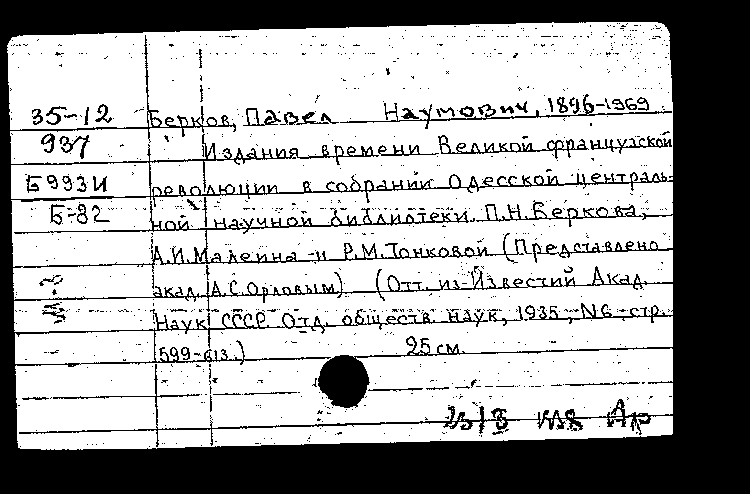 35-12 Берков, Павел Наумович, 1896-1969.
937 Издания времени Великой французской
Б993И революции в собрании Одесской централь-
Б-82 ной научной библиотеки П.Н.Беркова,
А.И.Малеина и Р.М.Тонковой (Представлено
акад. А.С.Орловым) (Отт. из Известий Акад.
Наук СССР. Отд. обществ. наук, 1935, №6, стр.
599-613.) 25 см.